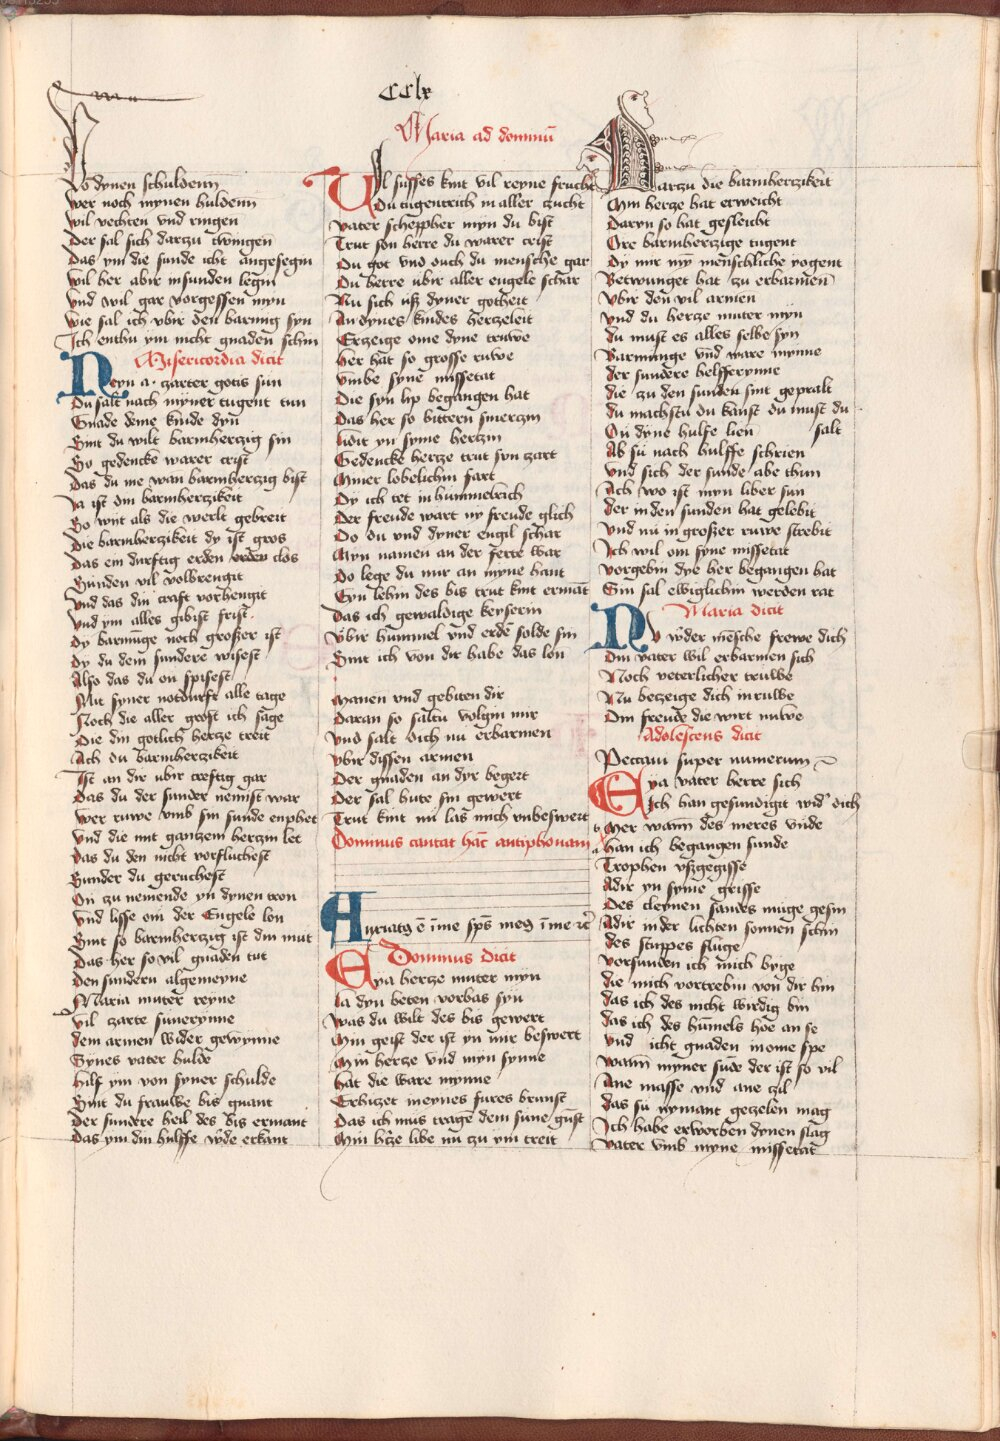 CClx
Vo dynen schuldenn
Wer noch mynen huldenn
Wil vechten vnd ringen
Der sal sich darzu twingen
Das ym die sunde icht angesegin
Wil her abir in sunden legin
Vnd wil gar vorgessen myn
Wie sal ich vbir den barmig syn
Ich enthu ym nicht gnaden schin
Misericordia dicit
Neyn a zarter gotis sun
Du salt nach myner tugent tun
Gnade deme kinde dyn
Sint du wilt barmherzig sin
So gedencke warer crist
Das du ine wan barmherczig bist
Ja ist din barmherzikeit
So wit als die werlt gebreit
Die barmherzikeit dy ist gros
Das ein durftig erden orden clos
Sunden vil volbrengit
Vnd das din craft vorhengit
Vnd ym alles gibist frist
Dy barmunge noch groszer ist
Dy du dem sundere wisest
Also das du on spisest
Mit syner notdurft alle tage
Noch die aller grost ich sage
Die din gotlich hercze treit
Ach du barmherzikeit
Ist an dir vbir creftig gar
Das du der sunder nemist war
Wer ruwe vmb sin sunde enphet
Vnd die mit ganczem herczin let
Das du den nicht vorfluchest
Sunder du geruchest
On zu nemende yn dynen tron
Vnd lisse om der Engele lon
Sint so barmherczig ist din mut
Das her so vil gnaden tut
Den sundern algemeyne
Maria muter reyne
Vil zarte sunerynne
dem armen wider gewynne
Synes vater hulde
Hilf ym von syner schulde
Sint du frauwe bis gnant
Der sundere heil des bis ermant
Das ym din hulffe w'de erkant
Maria ad dominū
Vil susses kint vil reyne frucht
Du tugentrich in aller zucht
Vater scheppher myn du bist
Trut son herre du warer crist
Du got vnd ouch du mensche gar
Du herre vbir aller engele schar
Nu sich vsz dyner gotheit
An dynes kindes herzeleit
Erzeige ome dyne truwe
her hat so grosse ruwe
Vmbe syne missetat
Die syn lip begangen hat
Das her so bittern smerczin
lidit yn syme herczin
Gedencke hercze trut syn zart
Miner lobelichin fart
Dy ich tet in hummelrich
Der freude wart ny freude glich
Do du vnd dyner engil schar
Myn namen an der ferte war
Do lege du mir an myne hant
Eyn lehin des bis trut kint ermant
Das ich gewaldige keyserin
Vbir hummel vnd erde solde sin
Sint ich von dir habe das lon
Manen vnd gebiten dir
Daran so saltu volgin mir
Vnd salt dich nu erbarmen
Vbir dissen armen
Der gnaden an dyr begert
Der sal hute sin gewert
Trut kint nu las mich vnbeswert
Dominus cantat hāc antiphonam
Anxiatꝰ ē ī me spūs meꝰ ī me ꝛc
Dominus dicit
Eya hercze muter myn
la dyn beten vorbas syn
Was du wilt des bis gewert
Min geist der ist yn mir beswert
Min hercze vnd myn synne
hat die ware mynne
Erhiczet meynes fures brunst
Das ich mus trage dem sune gunst
Min h'cze libe nu zu ym treit
Darzu die barmherzikeit
Min hercze hat erweicht
Daryn so hat gesleicht
Ore barmherczige tugent
Dy mir my menschliche yogent
Betwunget hat zu erbarmen
Vbir den vil armen
Vnd du hercze muter myn
du must es alles selbe syn
Barmunge vnd ware mynne
der sundere helfferynne
die zu den sunden sint gepfalt
du machstu du kanst du must du
On dyne hulfe lien salt
Ab su nach hulffe schrien
Vnd sich der sunde abe thun
Ach wo ist myn liber sun
der in den sunden hat gelebit
Vnd nu in groszer ruwe strebit
Ich wil om syne missetat
Vorgebin dye her begangen hat
Sin sal ewiglichin werden rat
Maria dicit
Nv w'der mensche frewe dich
Din vater wil erbarmen sich
Noch veterlicher truwe
Nu beczeige dich in ruwe
Din freude die wirt nuwe
Adolescens dicit
Peccaui super numerum
Eya vater herre sich
Ich han gesundigit wid' dich
Mer wann des meres vnde
han ich begangen sunde
Trophen vszgegisse
Adir yn syme grisse
Des cleynen sandes muge gesin
Adir in der lichten sonnen schin
des stuppes fluge
Vorsunden ich mich byge
die mich vortrebin von dir hin
das ich des nicht wirdig bin
das ich des humels hoe an se
Vnd icht gnaden in ome spe
Wann myner sunde der ist so vil
Ane masse vnd ane zil
das su nymant geczelen mag
Ich habe erworben dynen slag
Vater vmb myne missetat